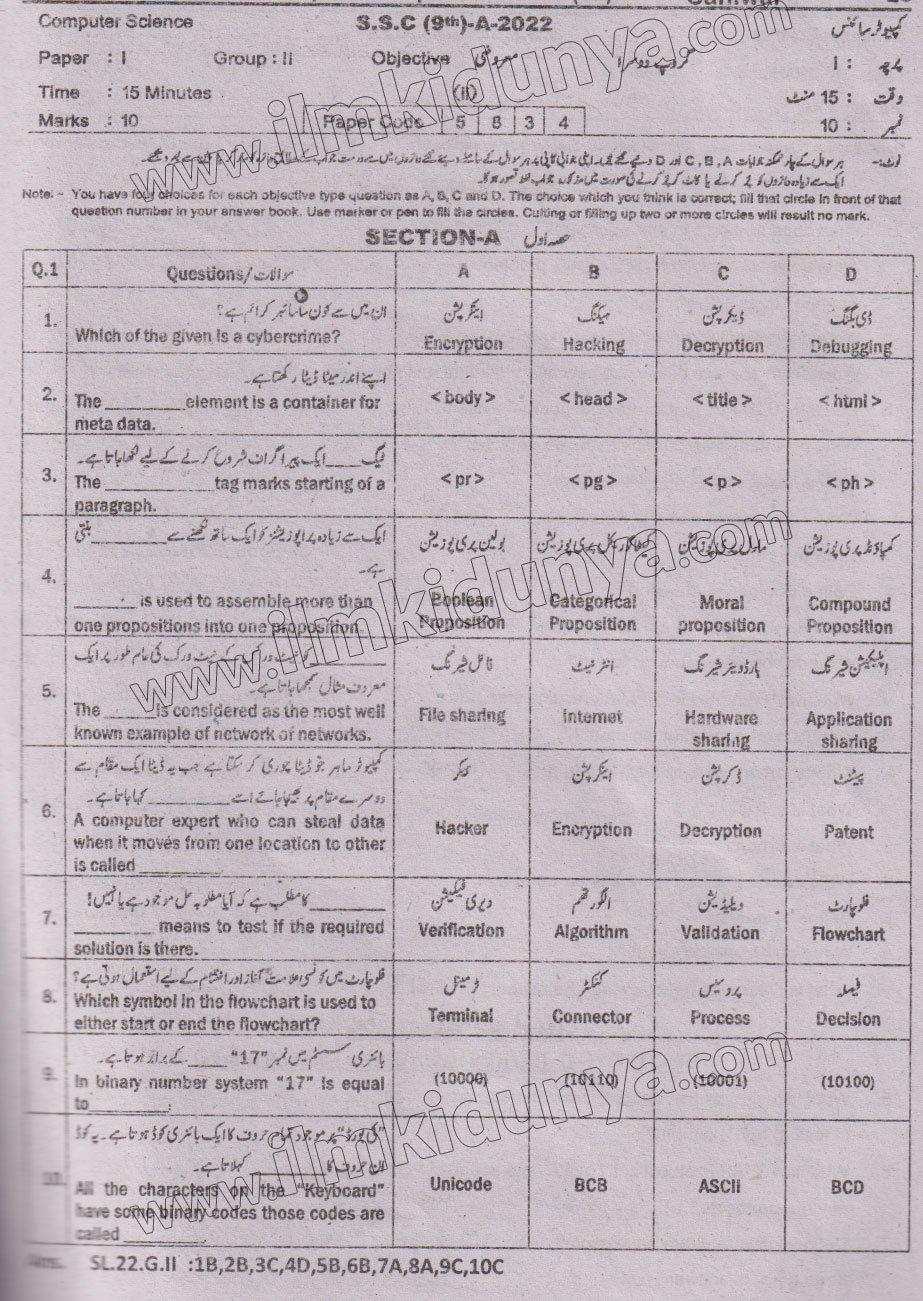 Computer Science S.S.C (9th)-A-2022 کمپیوٹر سائنس
Paper : I Group : II Objective معروضی گروپ دوسرا پرچہ : I
Time : 15 Minutes (ii) وقت : 15 منٹ
Marks : 10 Paper Code 5 8 3 4 نمبر : 10
Note: - You have four choices for each objective type question as A, B, C and D. The choice which you think is correct; fill that circle in front of that
question number in your answer book. Use marker or pen to fill the circles. Cutting or filling up two or more circles will result no mark.
SECTION-A حصہ اول
Q.1 Questions/سوالات A B C D
1. ان میں سے کون سا سائبر کرائم ہے؟ اینکرپشن ہیکنگ ڈیکرپشن ڈی بگنگ
Which of the given is a cybercrime? Encryption Hacking Decryption Debugging
2. اپنے اندر میٹا ڈیٹا رکھتا ہے۔
The ________element is a container for < body > < head > < title > < html >
meta data.
3. ٹیگ ____ ایک پیراگراف شروع کرنے کے لیے لکھا جاتا ہے۔
The ________ tag marks starting of a < pr > < pg > < p > < ph >
paragraph.
4. ایک سے زیادہ پراپوزیشنز کو ایک ساتھ لکھنے سے ________ بنتی بولین پری پوزیشن پری پوزیشن مارل پری پوزیشن کمپاؤنڈ پری پوزیشن
ہے۔
______ is used to assemble more than Boolean Categorical Moral Compound
one propositions into one proposition. Proposition Proposition proposition Proposition
5. ________ کو نیٹ ورکس کے نیٹ ورک کی عام طور پر ایک فائل شیرنگ انٹرنیٹ ہارڈویئر شیرنگ اپلیکیشن شیرنگ
معروف مثال سمجھا جاتا ہے۔
The _____is considered as the most well File sharing Internet Hardware Application
known example of network of networks. sharing sharing
6. کمپیوٹر ماہر جو ڈیٹا چوری کر سکتا ہے جب یہ ڈیٹا ایک مقام سے ہیکر اینکرپشن ڈکرپشن پیٹنٹ
دوسرے مقام پر بھیجا جائے اسے ________ کہا جاتا ہے۔
A computer expert who can steal data Hacker Encryption Decryption Patent
when it moves from one location to other
is called ________
7. ________ کا مطلب ہے کہ آیا مطلوبہ حل موجود ہے یا نہیں! ویری فیکیشن الگورتھم ویلیڈیشن فلوچارٹ
________ means to test if the required Verification Algorithm Validation Flowchart
solution is there.
8. فلوچارٹ میں کونسی علامت آغاز اور اختتام کے لیے استعمال ہوتی ہے؟ ٹرمینل کنکٹر پروسیس فیصلہ
Which symbol in the flowchart is used to Terminal Connector Process Decision
either start or end the flowchart?
9. بائنری سسٹم میں نمبر "17" ____ کے برابر ہوتا ہے۔
In binary number system "17" is equal (10000) (10110) (10001) (10100)
to________.
10. "کی بورڈ" پر موجود تمام حروف کا ایک بائنری کوڈ ہوتا ہے۔ یہ کوڈ
ان حروف کا ________ کہلاتا ہے۔
All the characters on the "Keyboard" Unicode BCB ASCII BCD
have some binary codes those codes are
called ________
Ans. SL.22.G.II :1B,2B,3C,4D,5B,6B,7A,8A,9C,10C
www.ilmkidunya.com
www.ilmkidunya.com
www.ilmkidunya.com